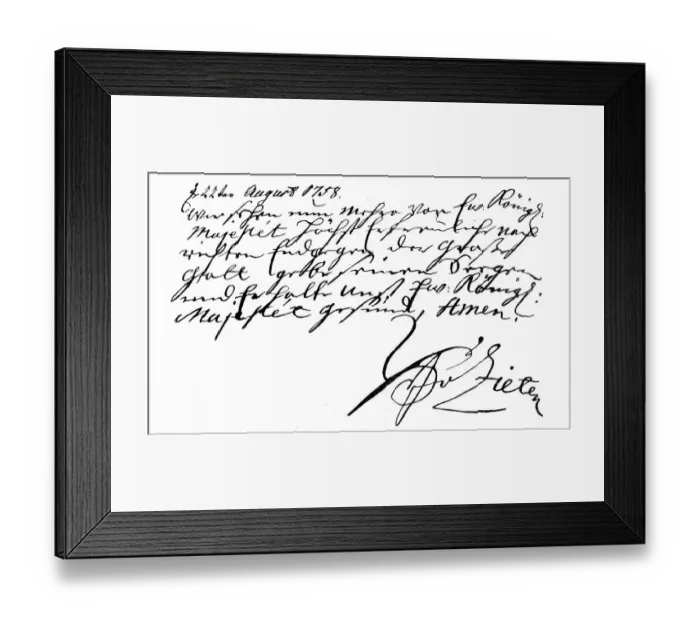 d 22ten August 1758.
Wir sehen nun mehro von Ew. Königl:
Majestét höchst Erfreuliche nach
richten Endgegen, der große
Gott gebe seinen Seegen
und Erhalte unß Ew. Königl:
Majestét gesund, Amen.
v Zieten